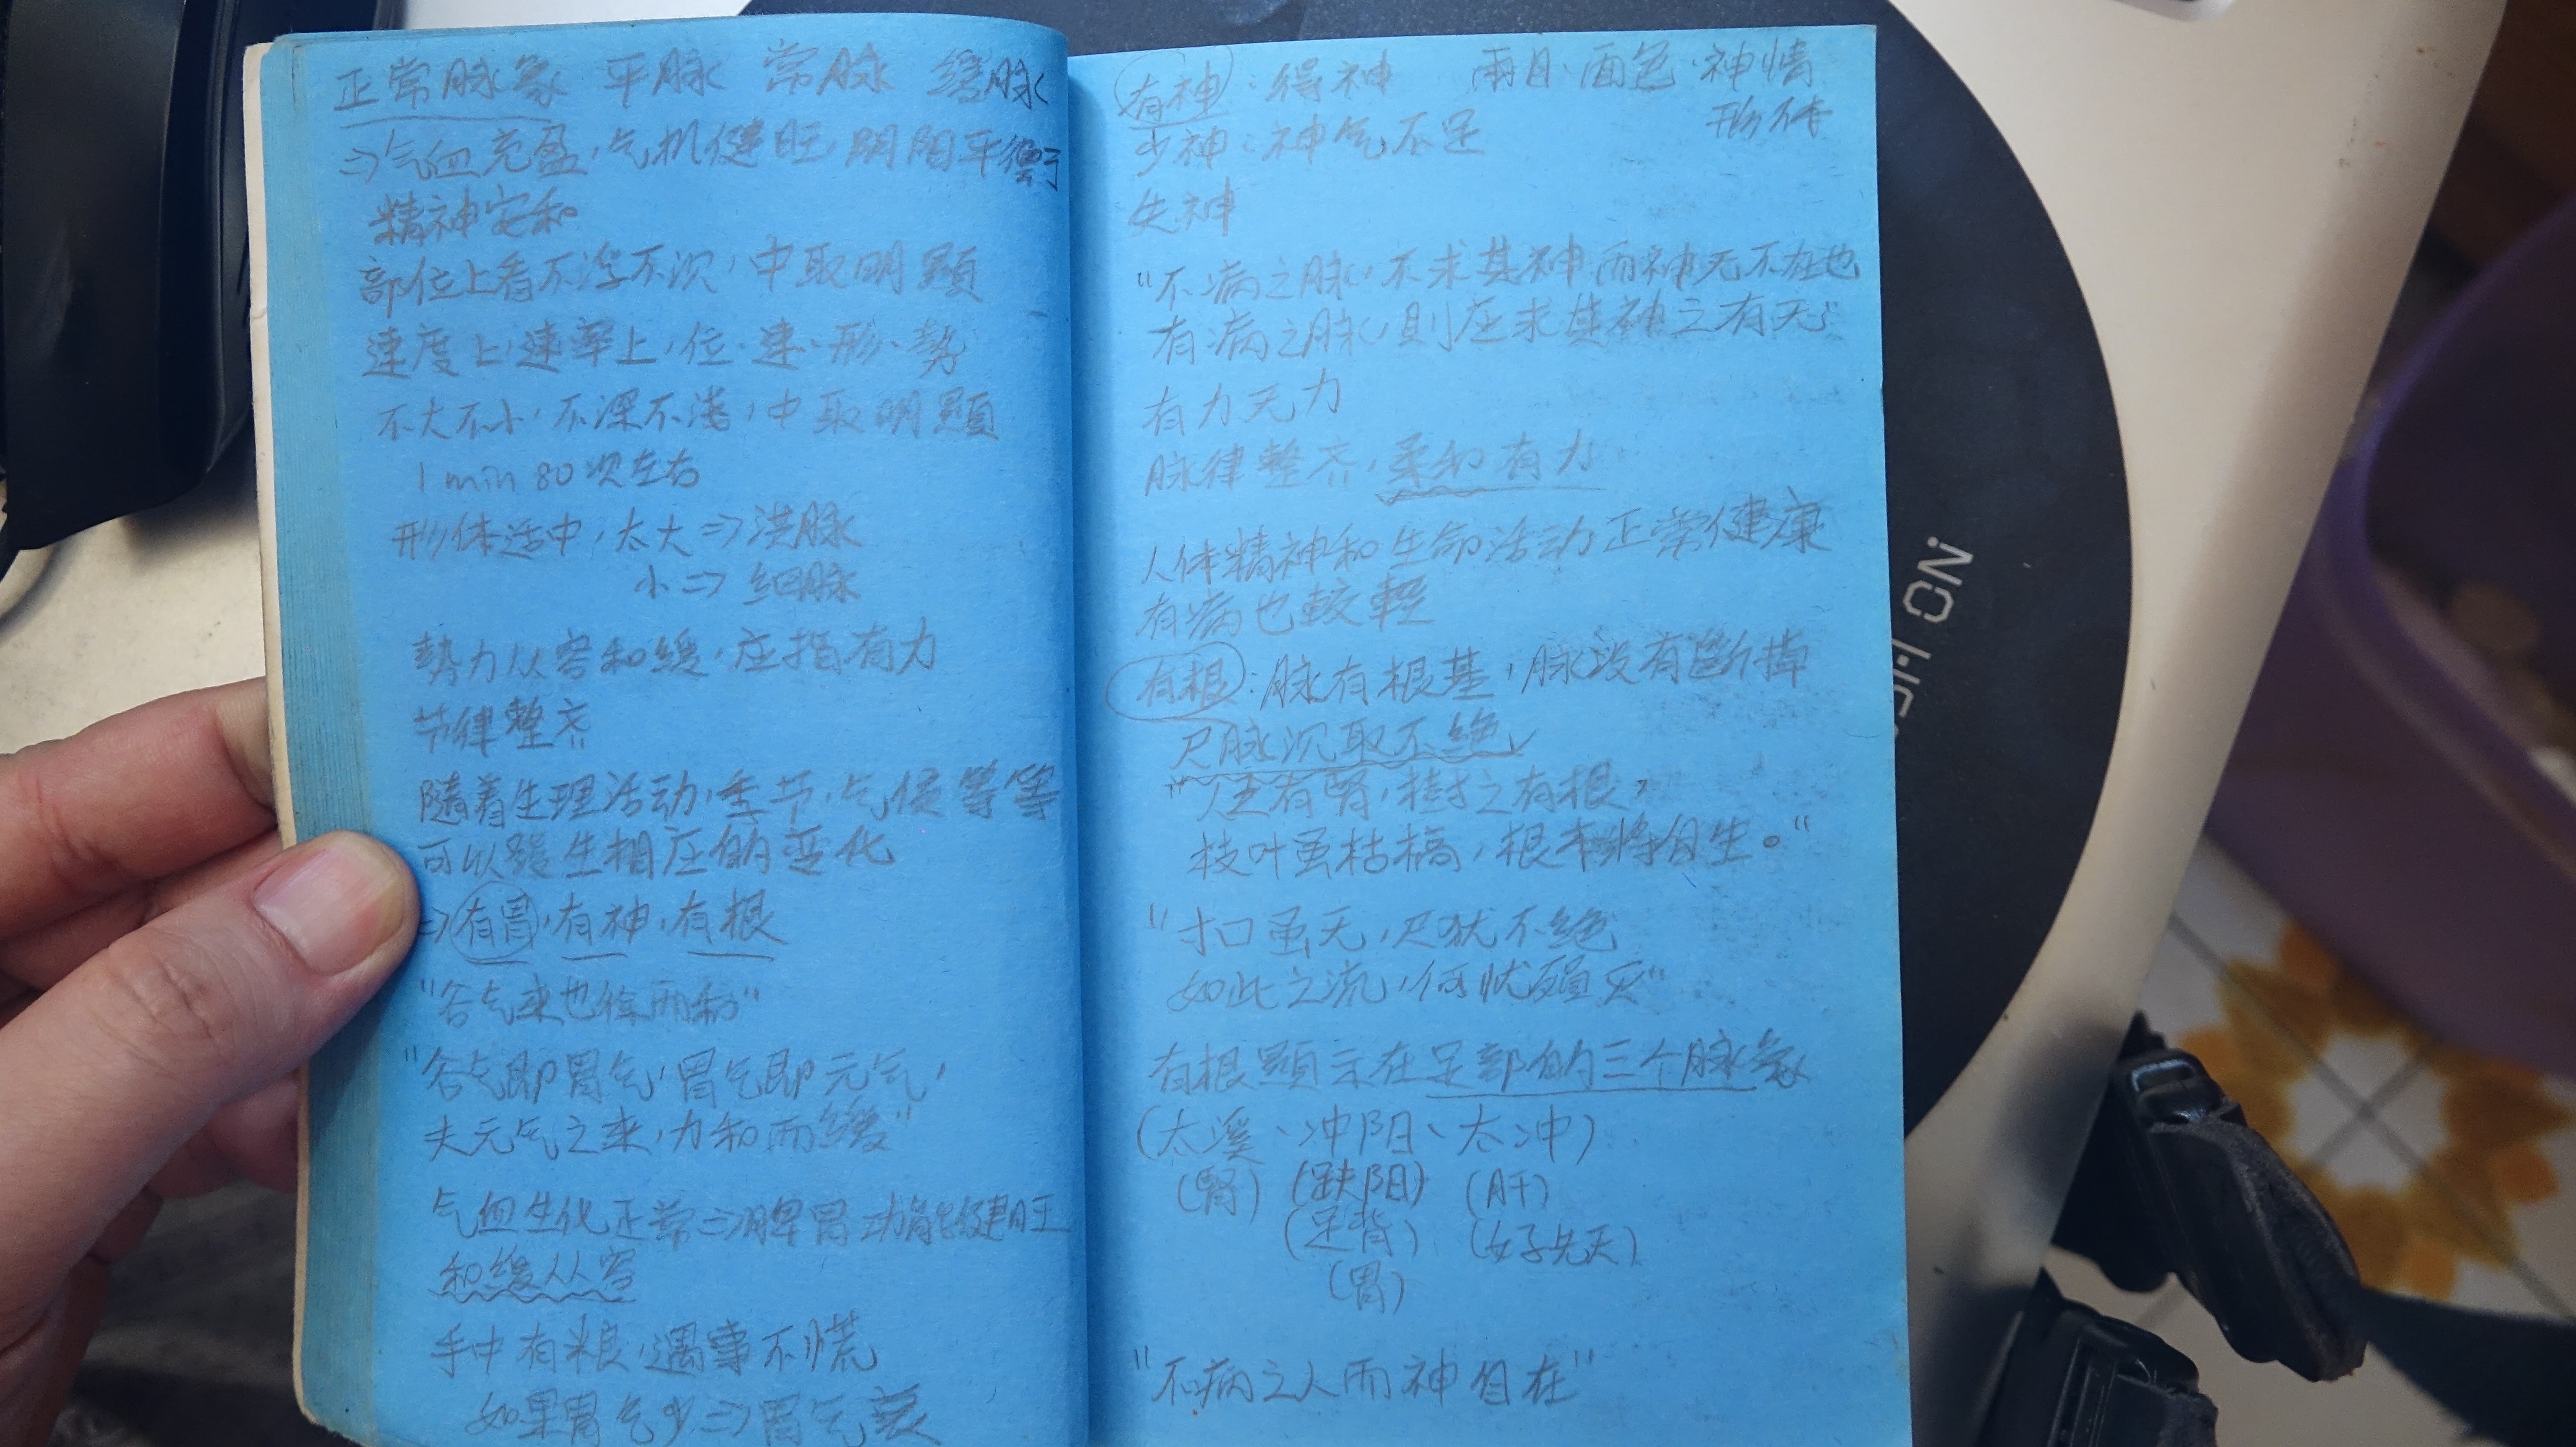 正常脉象 平脉 常脉 缓脉
⇒气血充盈，气机健旺，阴阳平衡
精神安和
部位上看不浮不沉，中取明顯
速度上，速率上，位、速、形、勢
不大不小，不深不浅，中取明顯
1 min 80次左右
形体适中，太大⇒洪脉
小⇒细脉
勢力从容和緩，应指有力
节律整齐
随着生理活动，季节，气侯等等
可以發生相应的变化
⇒有胃，有神，有根
"谷气来也徐而和"
"谷气即胃气，胃气即元气，
夫元气之来，力和而緩"
气血生化正常⇒脾胃功能健旺
和緩从容
手中有粮，遇事不慌
如果胃气少⇒胃气衰
有神：得神 兩目、面色、神情
形体
少神：神气不足
失神
"不病之脉，不求其神而神无不在也
有病之脉，則应求其神之有无"
有力无力
脉律整齐，柔和有力
人体精神和生命活动正常健康
有病也較輕
有根：脉有根基，脉没有斷掉
尺脉沉取不絶
"人之有腎，樹之有根，
枝叶虽枯槁，根本将自生。"
"寸口虽无，尺犹不绝
如此之流，何忧殞灭"
有根顯示在足部的三个脉象
(太溪、冲阳、太冲)
(腎) (趺阳) (肝)
(足背) (女子先天)
(胃)
"不病之人而神自在"
SH ON